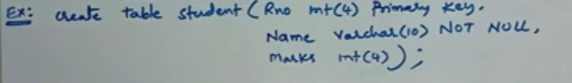 Ex: create table student ( Rno int(4) Primary Key,
Name varchar(10) NOT NULL,
marks int(4) ) ;